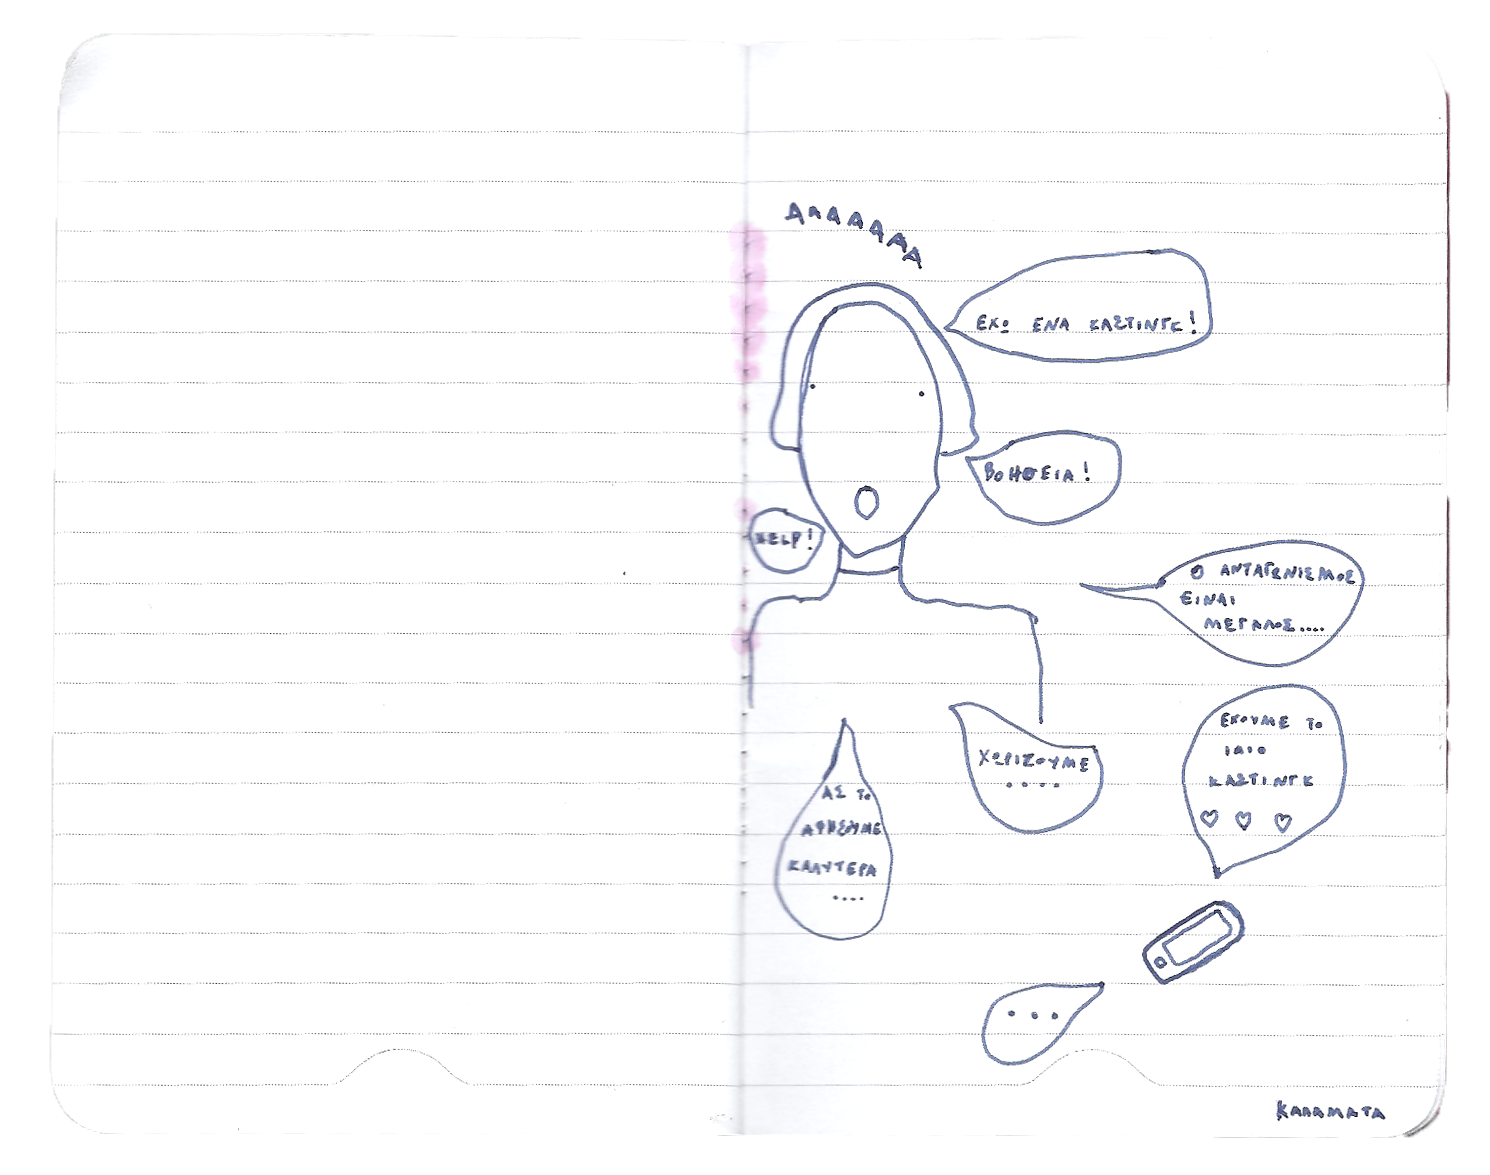 ΑΑΑΑΑΑΑ
ΕΧΩ ΕΝΑ ΚΑΣΤΙΝΓΚ!
ΒΟΗΘΕΙΑ!
HELP!
Ο ΑΝΤΑΓΩΝΙΣΜΟΣ
ΕΙΝΑΙ
ΜΕΓΑΛΟΣ....
ΧΩΡΙΖΟΥΜΕ
....
ΕΧΟΥΜΕ ΤΟ
ΙΔΙΟ
ΚΑΣΤΙΝΓΚ
♡ ♡ ♡
ΑΣ ΤΟ
ΑΦΗΣΟΥΜΕ
ΚΑΛΥΤΕΡΑ
....
...
ΚΑΛΑΜΑΤΑ